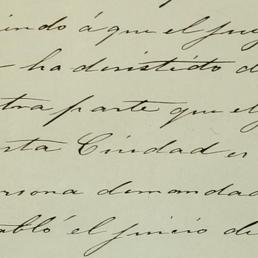 endo á que el juz
ha desistido d
tra parte que el
sta Ciudad es
ersona demandad
abló el juicio de